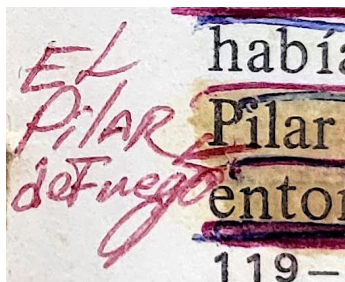 EL
PilAR
deFuego
había
Pilar
enton
119–